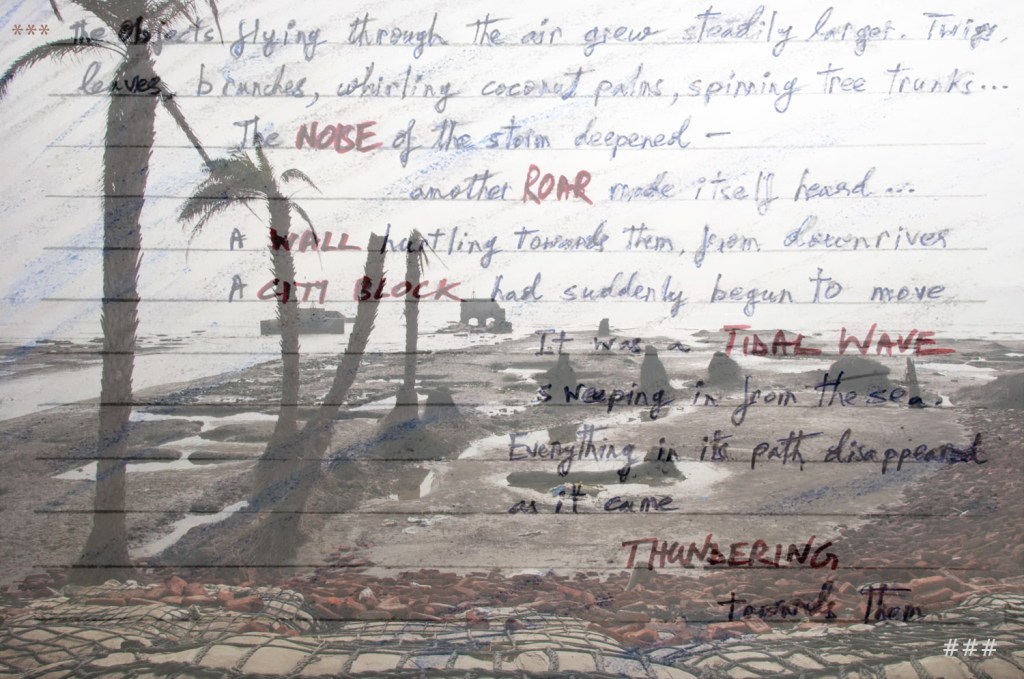 *** The objects flying through the air grew steadily larger. Twigs,
leaves, branches, whirling coconut palms, spinning tree trunks...
The NOISE of the storm deepened –
another ROAR made itself heard...
A WALL hurtling towards them, from downriver
A CITY BLOCK had suddenly begun to move
It was a TIDAL WAVE
sweeping in from the sea.
Everything in its path disappeared
as it came
THUNDERING
towards them
###